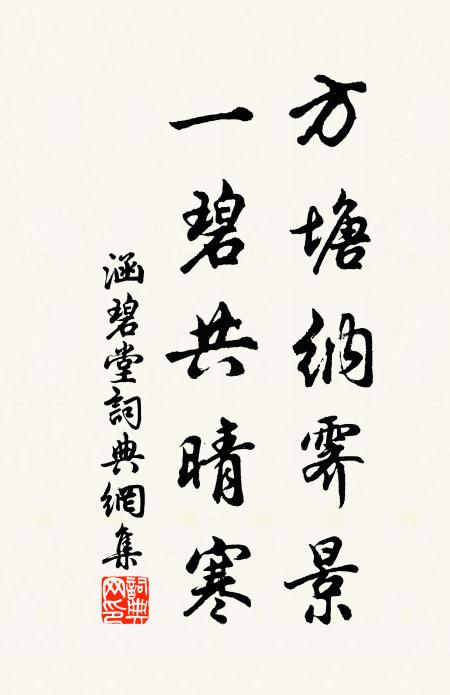 方塘納霽景
一碧共晴寒
涵碧堂詞典網集
詞典網印